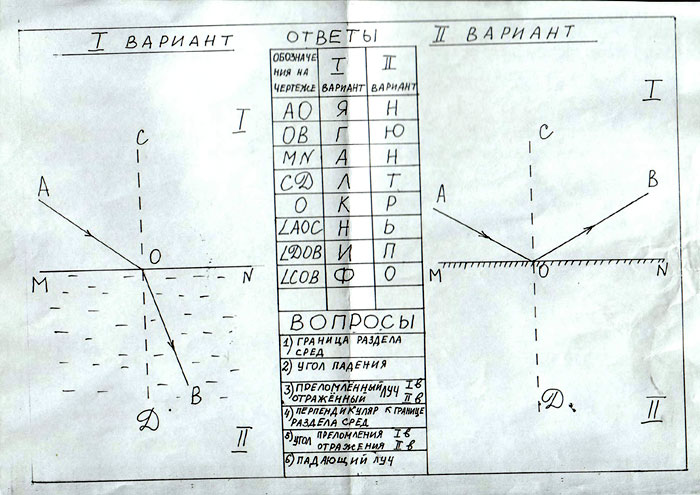 I ВАРИАНТ
I
C
A
O
M
N
B
D
II
ОТВЕТЫ
ОБОЗНАЧЕ
НИЯ НА
ЧЕРТЕЖЕ
I
ВАРИАНТ
II
ВАРИАНТ
AO Я Н
OB Г Ю
MN А Н
CD Л Т
O К Р
∠AOC Н Ь
∠DOB И П
∠COB Ф О
ВОПРОСЫ
1) ГРАНИЦА РАЗДЕЛА
СРЕД
2) УГОЛ ПАДЕНИЯ
3) ПРЕЛОМЛЁННЫЙ ЛУЧ I в
ОТРАЖЁННЫЙ II в
4) ПЕРПЕНДИКУЛЯР К ГРАНИЦЕ
РАЗДЕЛА СРЕД
5) УГОЛ ПРЕЛОМЛЕНИЯ I в
ОТРАЖЕНИЯ II в
6) ПАДАЮЩИЙ ЛУЧ
II ВАРИАНТ
I
C
A
B
M
O
N
D
II